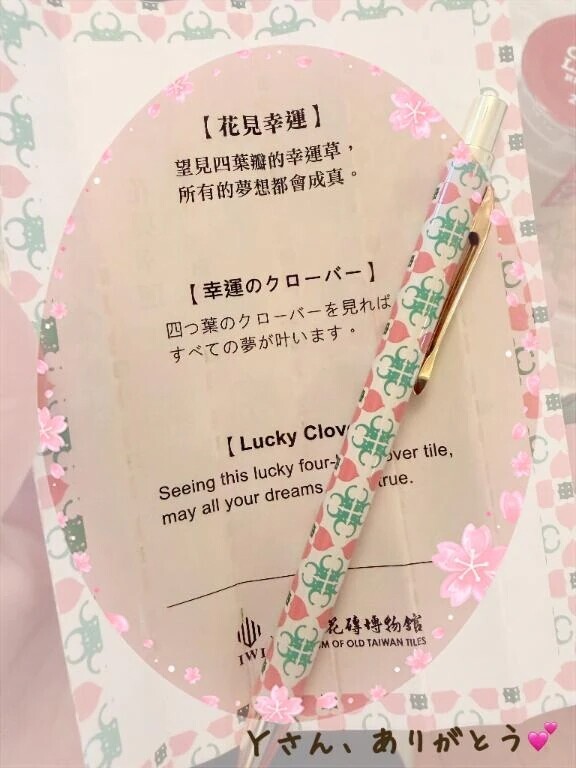 【花見幸運】
望見四葉瓣的幸運草，
所有的夢想都會成真。
【幸運のクローバー】
四つ葉のクローバーを見れば
すべての夢が叶います。
【Lucky Clov
Seeing this lucky four- over tile,
may all your dreams true.
IWI
花磚博物館
M OF OLD TAIWAN TILES
Yさん、ありがとう💕